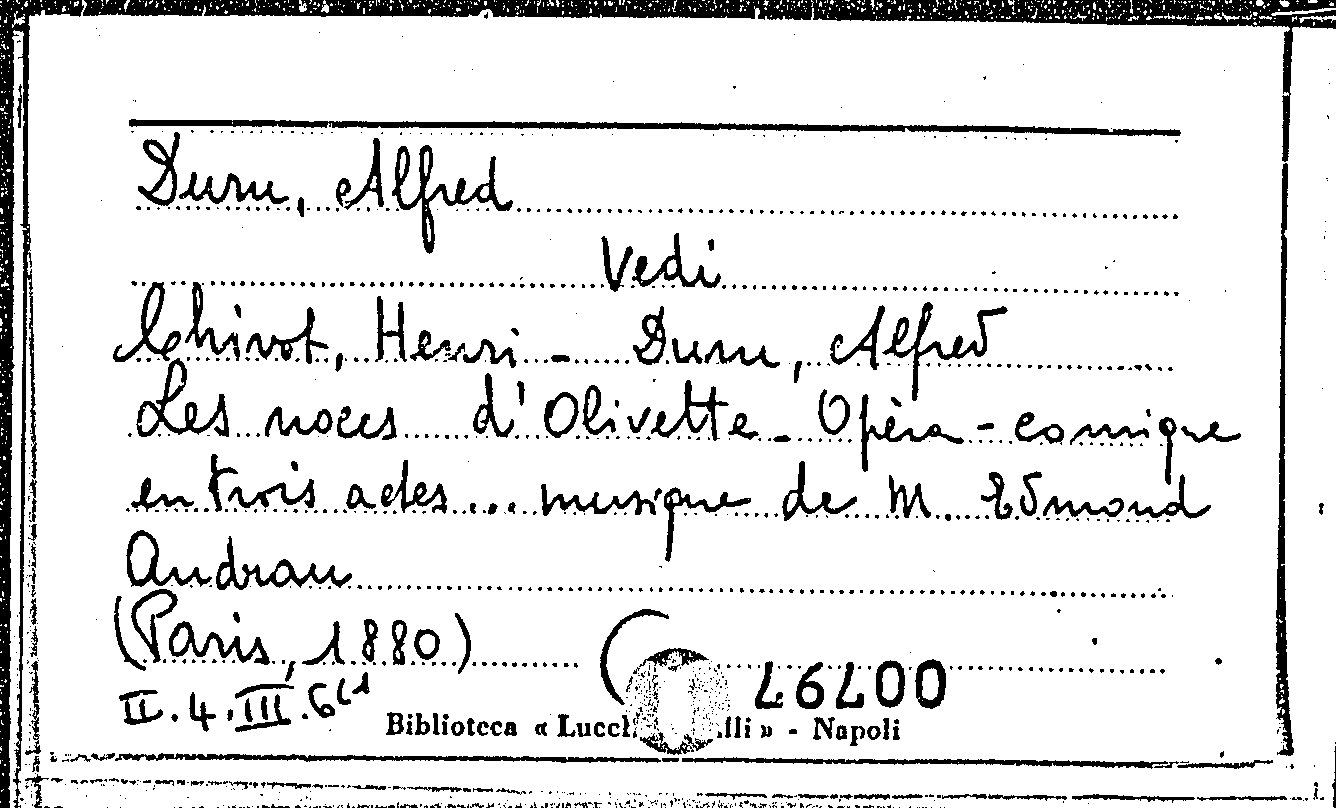 Duru, Alfred
Vedi
Chivot, Henri - Duru, Alfred
Les noces d'Olivette - Opéra-comique
en trois actes... musique de M. Edmond
Audran
(Paris, 1880)
46700
II.4.III.6(1
Biblioteca « - Napoli